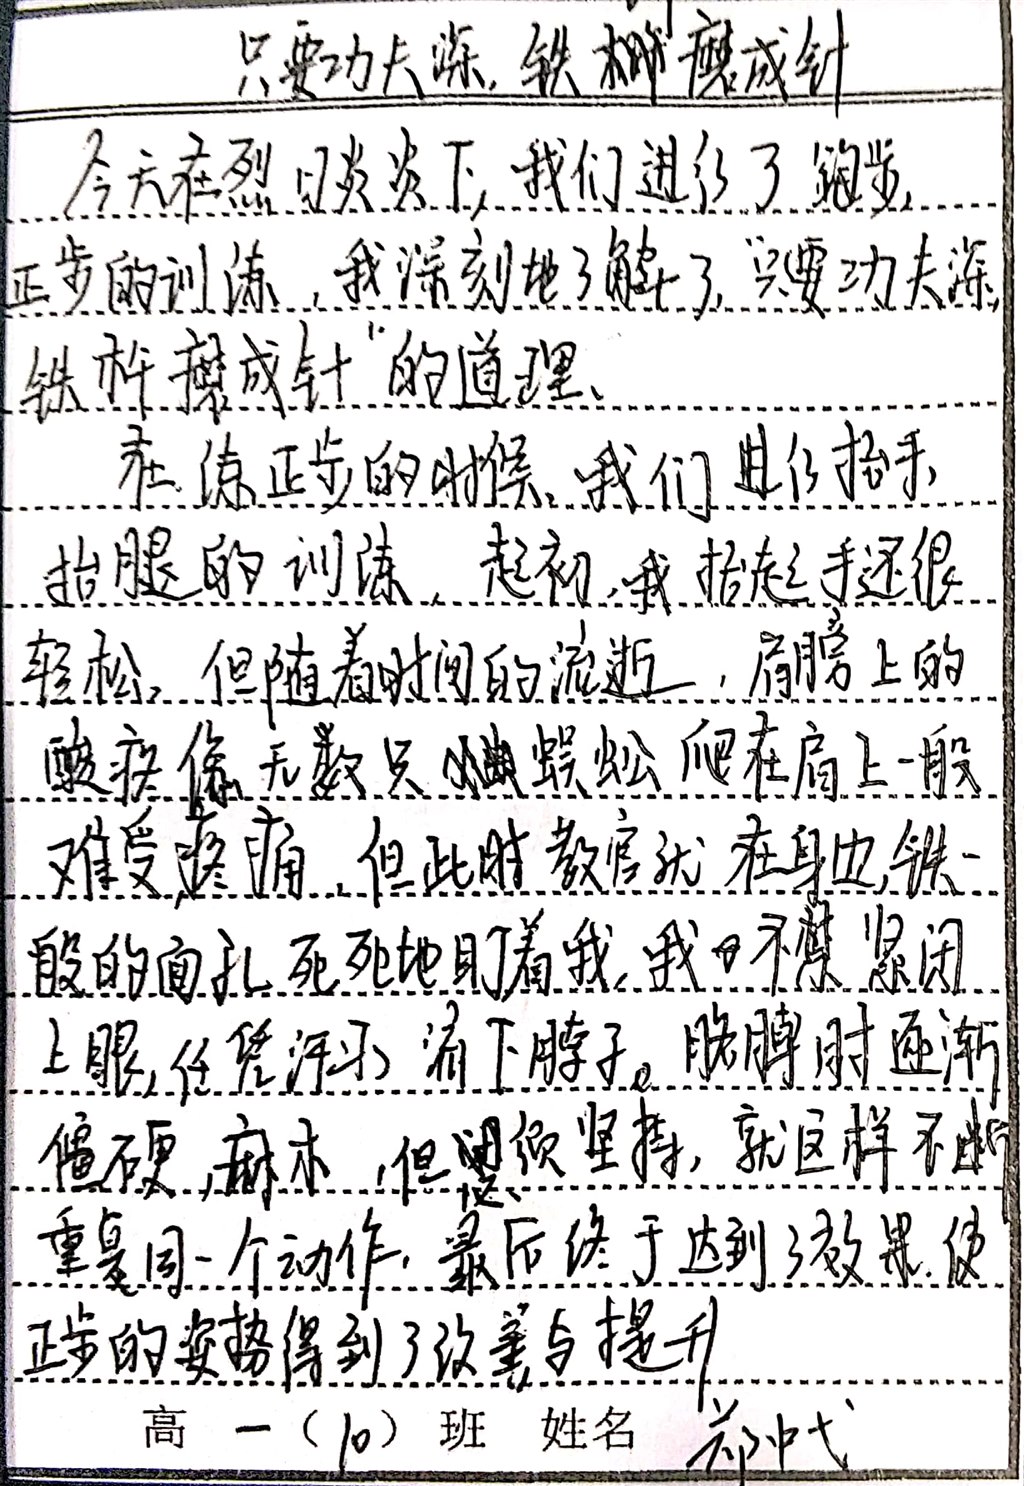 只要功夫深,铁杵磨成针
今天在烈日炎炎下,我们进行了跑步,
正步的训练,我深刻地了解了,“只要功夫深,
铁杵磨成针”的道理、
在练正步的时候,我们进行抬手,
抬腿的训练,起初,我抬起手还很
轻松,但随着时间的流逝,肩膀上的
酸疼像无数只蜈蚣爬在肩上一般
难受,疼痛,但此时教官就在身边,铁一
般的面孔死死地盯着我,我不禁紧闭
上眼,任凭汗水流下脖子。胳膊肘逐渐
僵硬,麻木,但必须坚持,就这样不断
重复同一个动作,最后终于达到了效果,使
正步的姿势得到了改善与提升
高一(10)班 姓名 郑中